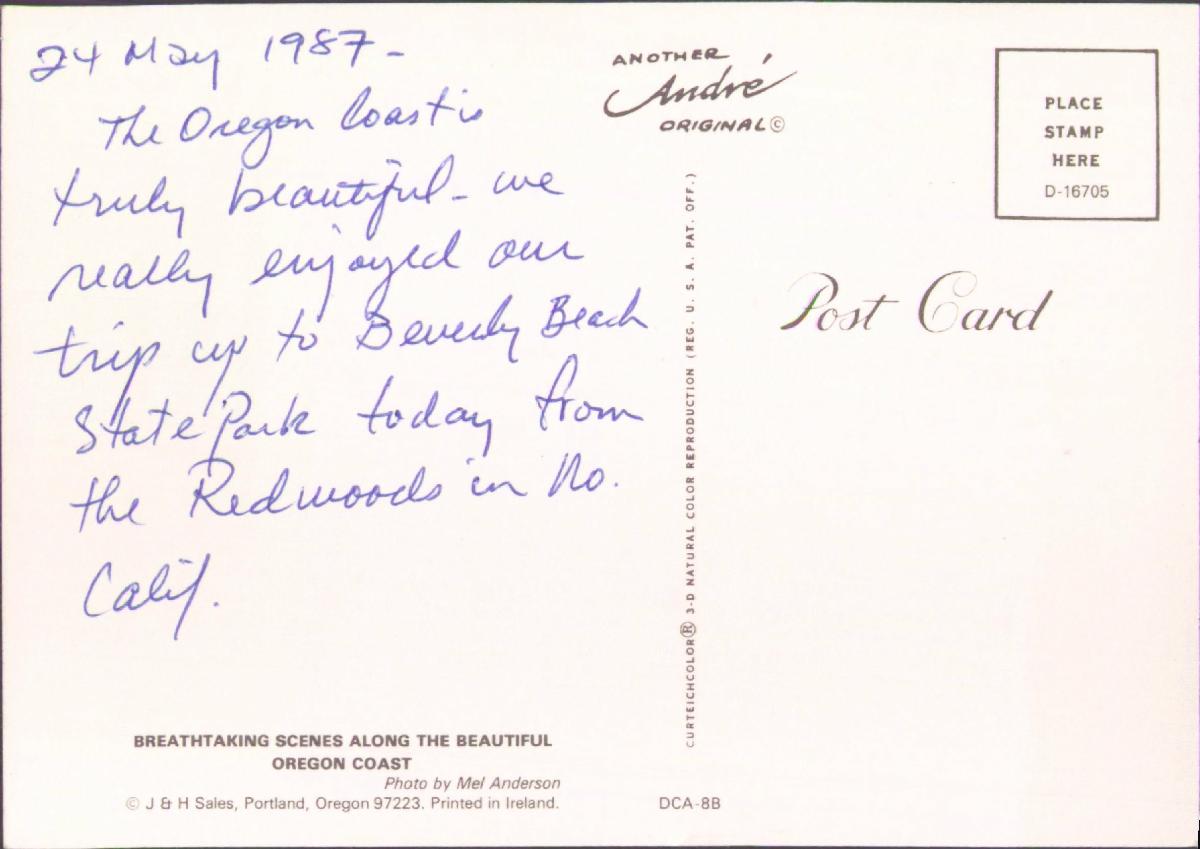 24 May 1987-
The Oregon Coast is
truly beautiful - we
really enjoyed our
trip up to Beverly Beach
State Park today from
the Redwoods in No.
Calif.
BREATHTAKING SCENES ALONG THE BEAUTIFUL
OREGON COAST
Photo by Mel Anderson
© J & H Sales, Portland, Oregon 97223. Printed in Ireland.
ANOTHER
André
ORIGINAL©
CURTEICHCOLOR® 3-D NATURAL COLOR REPRODUCTION (REG. U. S. A. PAT. OFF.)
DCA-8B
PLACE
STAMP
HERE
D-16705
Post Card